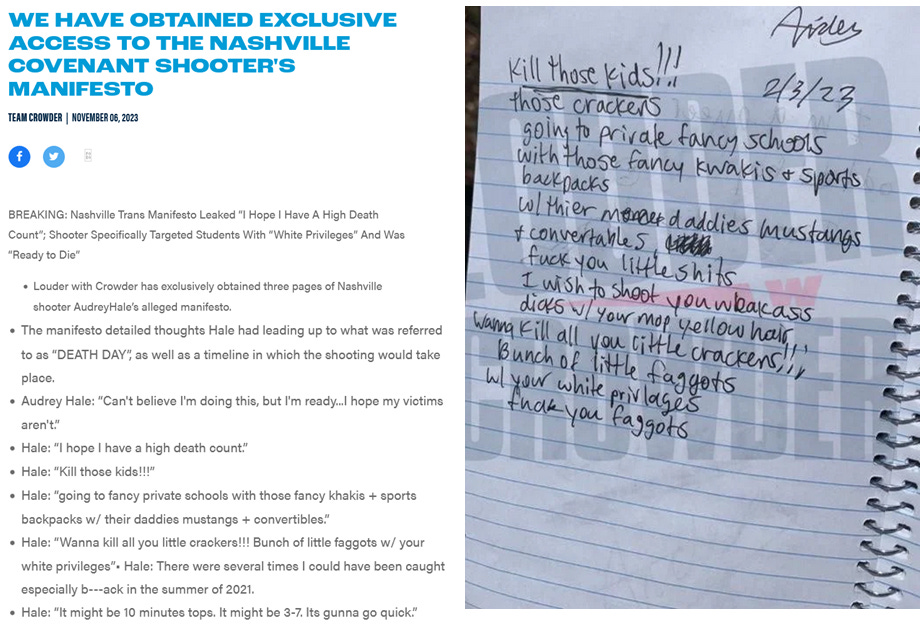 WE HAVE OBTAINED EXCLUSIVE
ACCESS TO THE NASHVILLE
COVENANT SHOOTER'S
MANIFESTO
TEAM CROWDER | NOVEMBER 06, 2023
BREAKING: Nashville Trans Manifesto Leaked "I Hope I Have A High Death
Count"; Shooter Specifically Targeted Students With "White Privileges" And Was
"Ready to Die"
• Louder with Crowder has exclusively obtained three pages of Nashville
shooter AudreyHale's alleged manifesto.
• The manifesto detailed thoughts Hale had leading up to what was referred
to as "DEATH DAY", as well as a timeline in which the shooting would take
place.
• Audrey Hale: "Can't believe I'm doing this, but I'm ready...I hope my victims
aren't."
• Hale: "I hope I have a high death count."
• Hale: "Kill those kids!!!"
• Hale: "going to fancy private schools with those fancy khakis + sports
backpacks w/ their daddies mustangs + convertibles."
• Hale: "Wanna kill all you little crackers!!! Bunch of little faggots w/ your
white privileges"• Hale: There were several times I could have been caught
especially b---ack in the summer of 2021.
• Hale: "It might be 10 minutes tops. It might be 3-7. Its gunna go quick."
Aiden
2/3/23
Kill those kids!!!
those crackers
going to private fancy schools
with those fancy kwakis + sports
backpacks
w/ thier daddies mustangs
+ convertables,
fuck you little shits
I wish to shoot you weakass
dicks w/ your mop yellow hair,
wanna kill all you little crackers!!!
Bunch of little faggots
w/ your white privlages
fuck you faggots